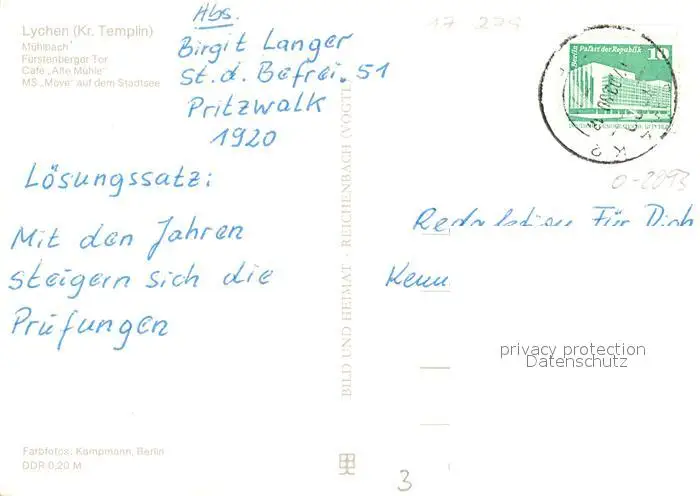 Lychen (Kr. Templin)
Mühlbach
Fürstenberger Tor
Café „Alte Mühle"
MS „Möve" auf dem Stadtsee
Abs.
Birgit Langer
St. d. Befrei. 51
Pritzwalk
1920
Lösungssatz:
Mit den Jahren
steigern sich die
Prüfungen
Farbfotos: Kampmann, Berlin
DDR 0,20 M
BILD UND HEIMAT · REICHENBACH (VOGTL
17 279
Berlin Palast der Republik 10
DEUTSCHE DEMOKRATISCHE REPUBLIK
0-2093
Redaktion Für Dich
Kenn
privacy protection
Datenschutz
3